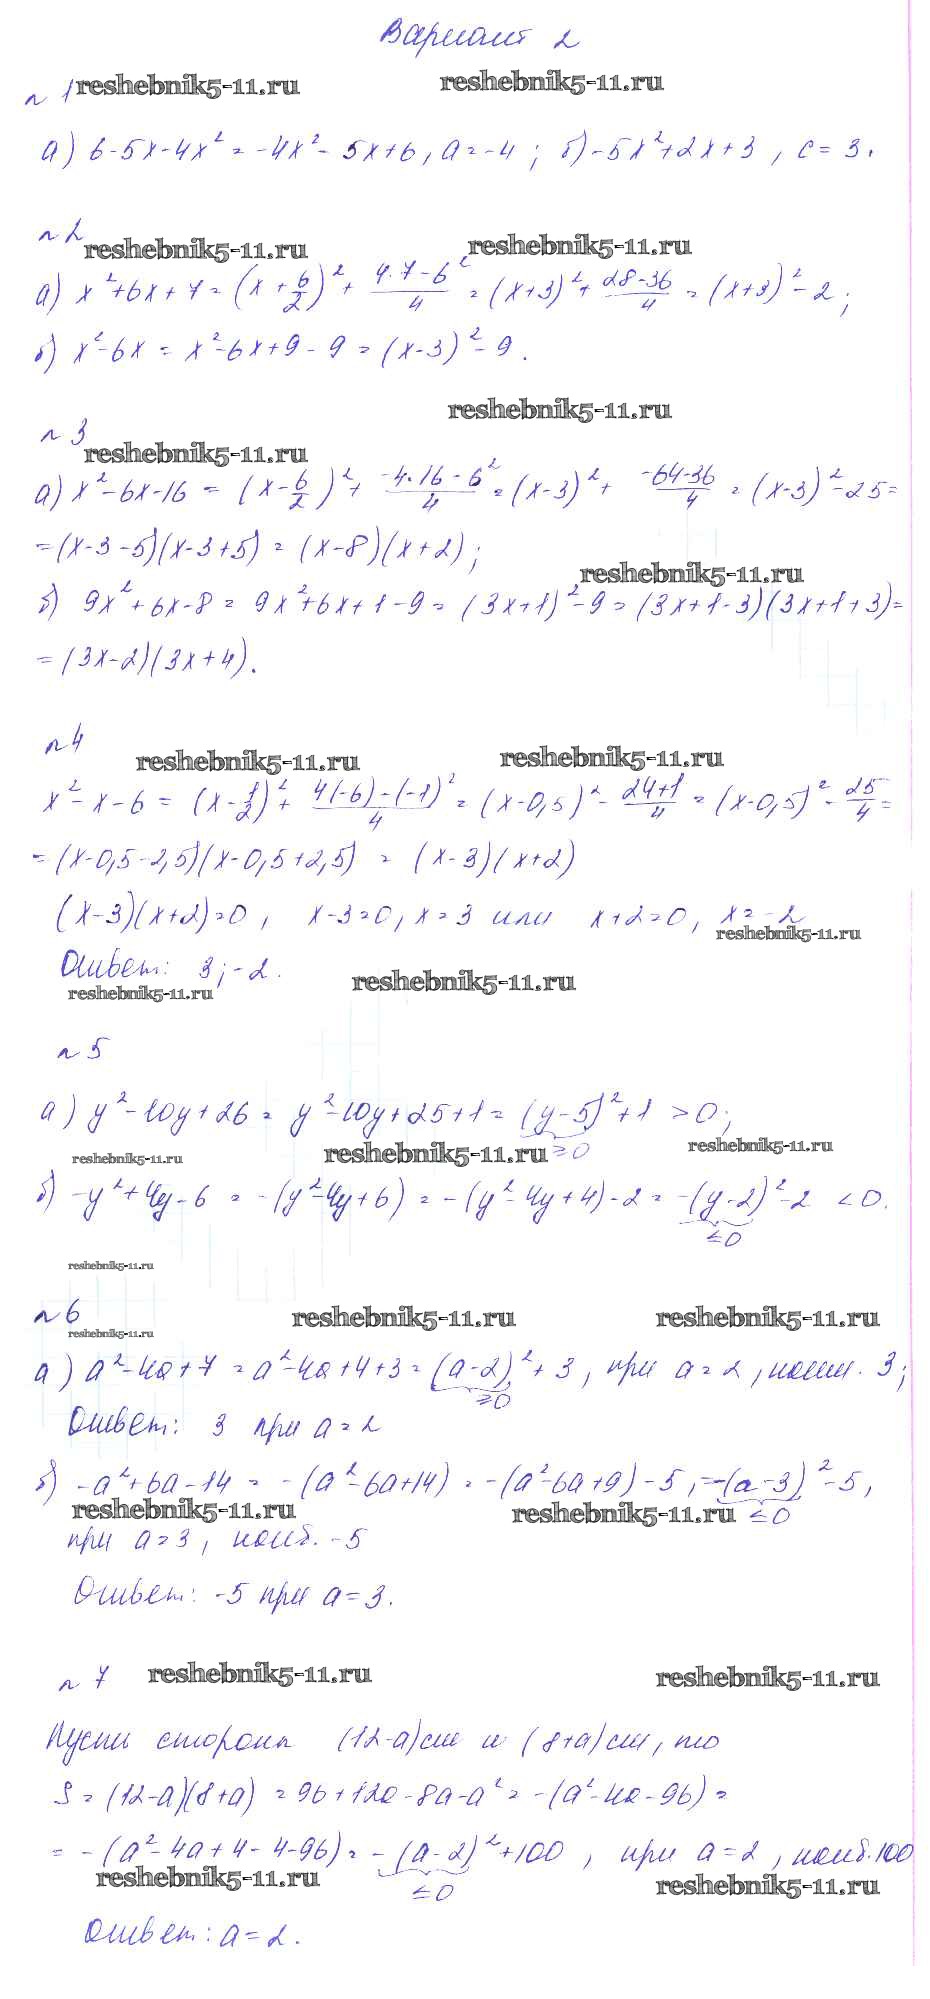 Вариант 2
reshebnik5-11.ru reshebnik5-11.ru
n 1
а) 6-5x-4x² = -4x²-5x+6, a=-4; б) -5x²+2x+3, c=3.
n 2
reshebnik5-11.ru reshebnik5-11.ru
а) x²+6x+7 = (x+6/2)² + (4·7-6²)/4 = (x+3)² + (28-36)/4 = (x+3)²-2;
б) x²-6x = x²-6x+9-9 = (x-3)²-9.
reshebnik5-11.ru
n 3
reshebnik5-11.ru
а) x²-6x-16 = (x-6/2)² + (-4·16-6²)/4 = (x-3)² + (-64-36)/4 = (x-3)²-25=
=(x-3-5)(x-3+5) = (x-8)(x+2);
reshebnik5-11.ru
б) 9x²+6x-8 = 9x²+6x+1-9 = (3x+1)²-9 = (3x+1-3)(3x+1+3)=
=(3x-2)(3x+4).
n 4
reshebnik5-11.ru reshebnik5-11.ru
x²-x-6 = (x-1/2)² + (4(-6)-(-1)²)/4 = (x-0,5)² - (24+1)/4 = (x-0,5)² - 25/4 =
=(x-0,5-2,5)(x-0,5+2,5) = (x-3)(x+2)
(x-3)(x+2)=0, x-3=0, x=3 или x+2=0, x=-2
reshebnik5-11.ru
Ответ: 3; -2.
reshebnik5-11.ru reshebnik5-11.ru
n 5
а) y²-10y+26 = y²-10y+25+1 = (y-5)²+1 >0;
≥0
reshebnik5-11.ru reshebnik5-11.ru reshebnik5-11.ru
б) -y²+4y-6 = -(y²-4y+6) = -(y²-4y+4)-2 = -(y-2)²-2 <0.
≤0
reshebnik5-11.ru
n 6 reshebnik5-11.ru reshebnik5-11.ru
reshebnik5-11.ru
а) a²-4a+7 = a²-4a+4+3 = (a-2)²+3, при a=2, наим. 3;
≥0
Ответ: 3 при a=2
б) -a²+6a-14 = -(a²-6a+14) = -(a²-6a+9)-5, =-(a-3)²-5,
≤0
reshebnik5-11.ru reshebnik5-11.ru
при a=3, наиб. -5
Ответ: -5 при a=3.
n 7 reshebnik5-11.ru reshebnik5-11.ru
Пусть стороны (12-a)см и (8+a)см, то
S = (12-a)(8+a) = 96+12a-8a-a² = -(a²-4a-96) =
= -(a²-4a+4-4-96) = -(a-2)²+100, при a=2, наиб. 100
≤0
reshebnik5-11.ru reshebnik5-11.ru
Ответ: a=2.